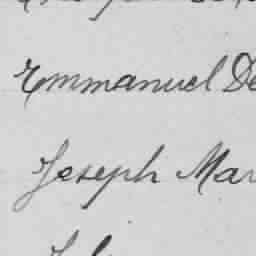 Emmanuel De
Joseph Mar